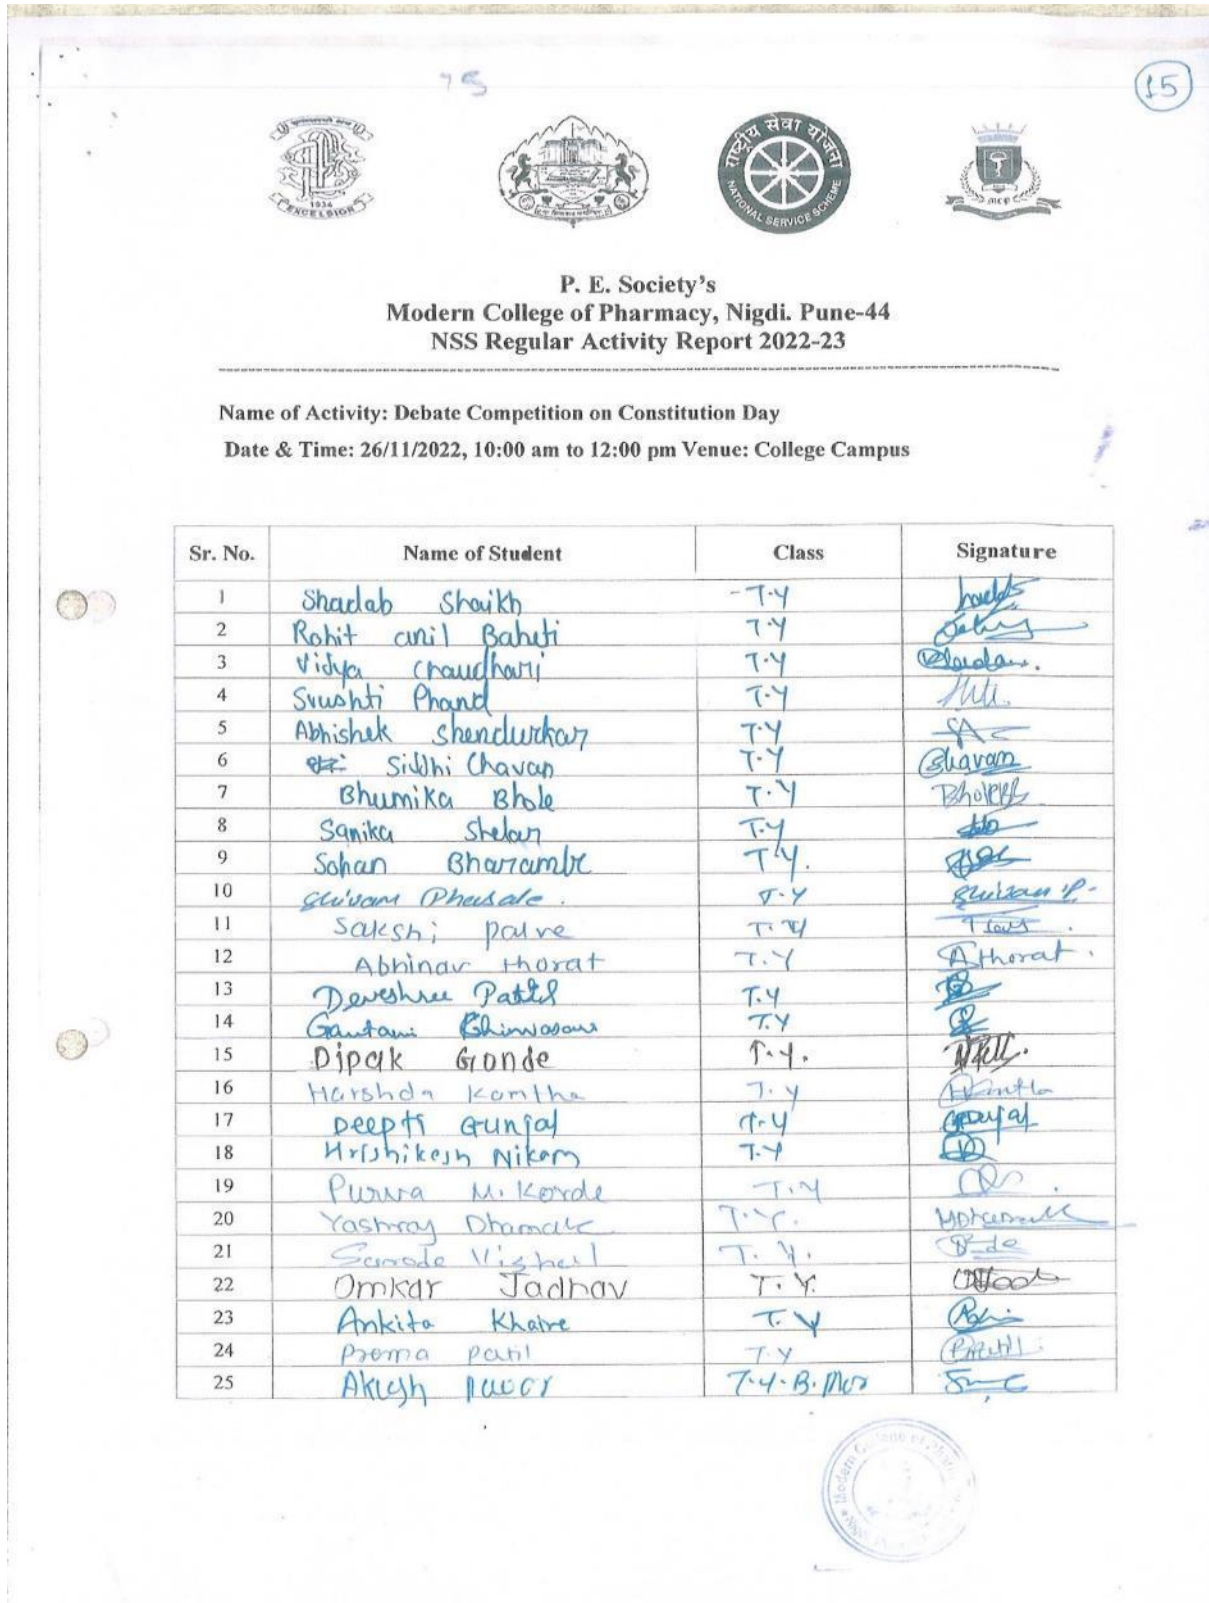 15
1934
EXCELSIOR
राष्ट्रीय सेवा योजना
NATIONAL SERVICE SCHEME
MCP
P. E. Society's
Modern College of Pharmacy, Nigdi. Pune-44
NSS Regular Activity Report 2022-23
Name of Activity: Debate Competition on Constitution Day
Date & Time: 26/11/2022, 10:00 am to 12:00 pm Venue: College Campus
Sr. No. Name of Student Class Signature
1 Shadab Shaikh T.Y
2 Rohit anil Baheti T.Y
3 Vidya Chaudhari T.Y
4 Srushti Phand T.Y
5 Abhishek Shendurkar T.Y
6 Siddhi Chavan T.Y Chavan
7 Bhumika Bhole T.Y
8 Sanika Shelar T.Y
9 Sohan Bharambe T.Y.
10 Shivam Phasale. T.Y Shivam P.
11 Sakshi Palve T.Y
12 Abhinav thorat T.Y Athorat.
13 Deveshree Patil T.Y
14 Gautami T.Y
15 Dipak Gonde T.Y.
16 Harshda Kamtha T.Y
17 Deepti Gunjal T.Y
18 Hrishikesh Nikam T.Y
19 Purva M. Korde T.Y
20 Yashraj Dhamale T.Y.
21 Sarode Vishal T.Y.
22 Omkar Jadhav T.Y.
23 Ankita Khaire T.Y
24 Prema Patil T.Y
25 T.Y.B.
Modern College of